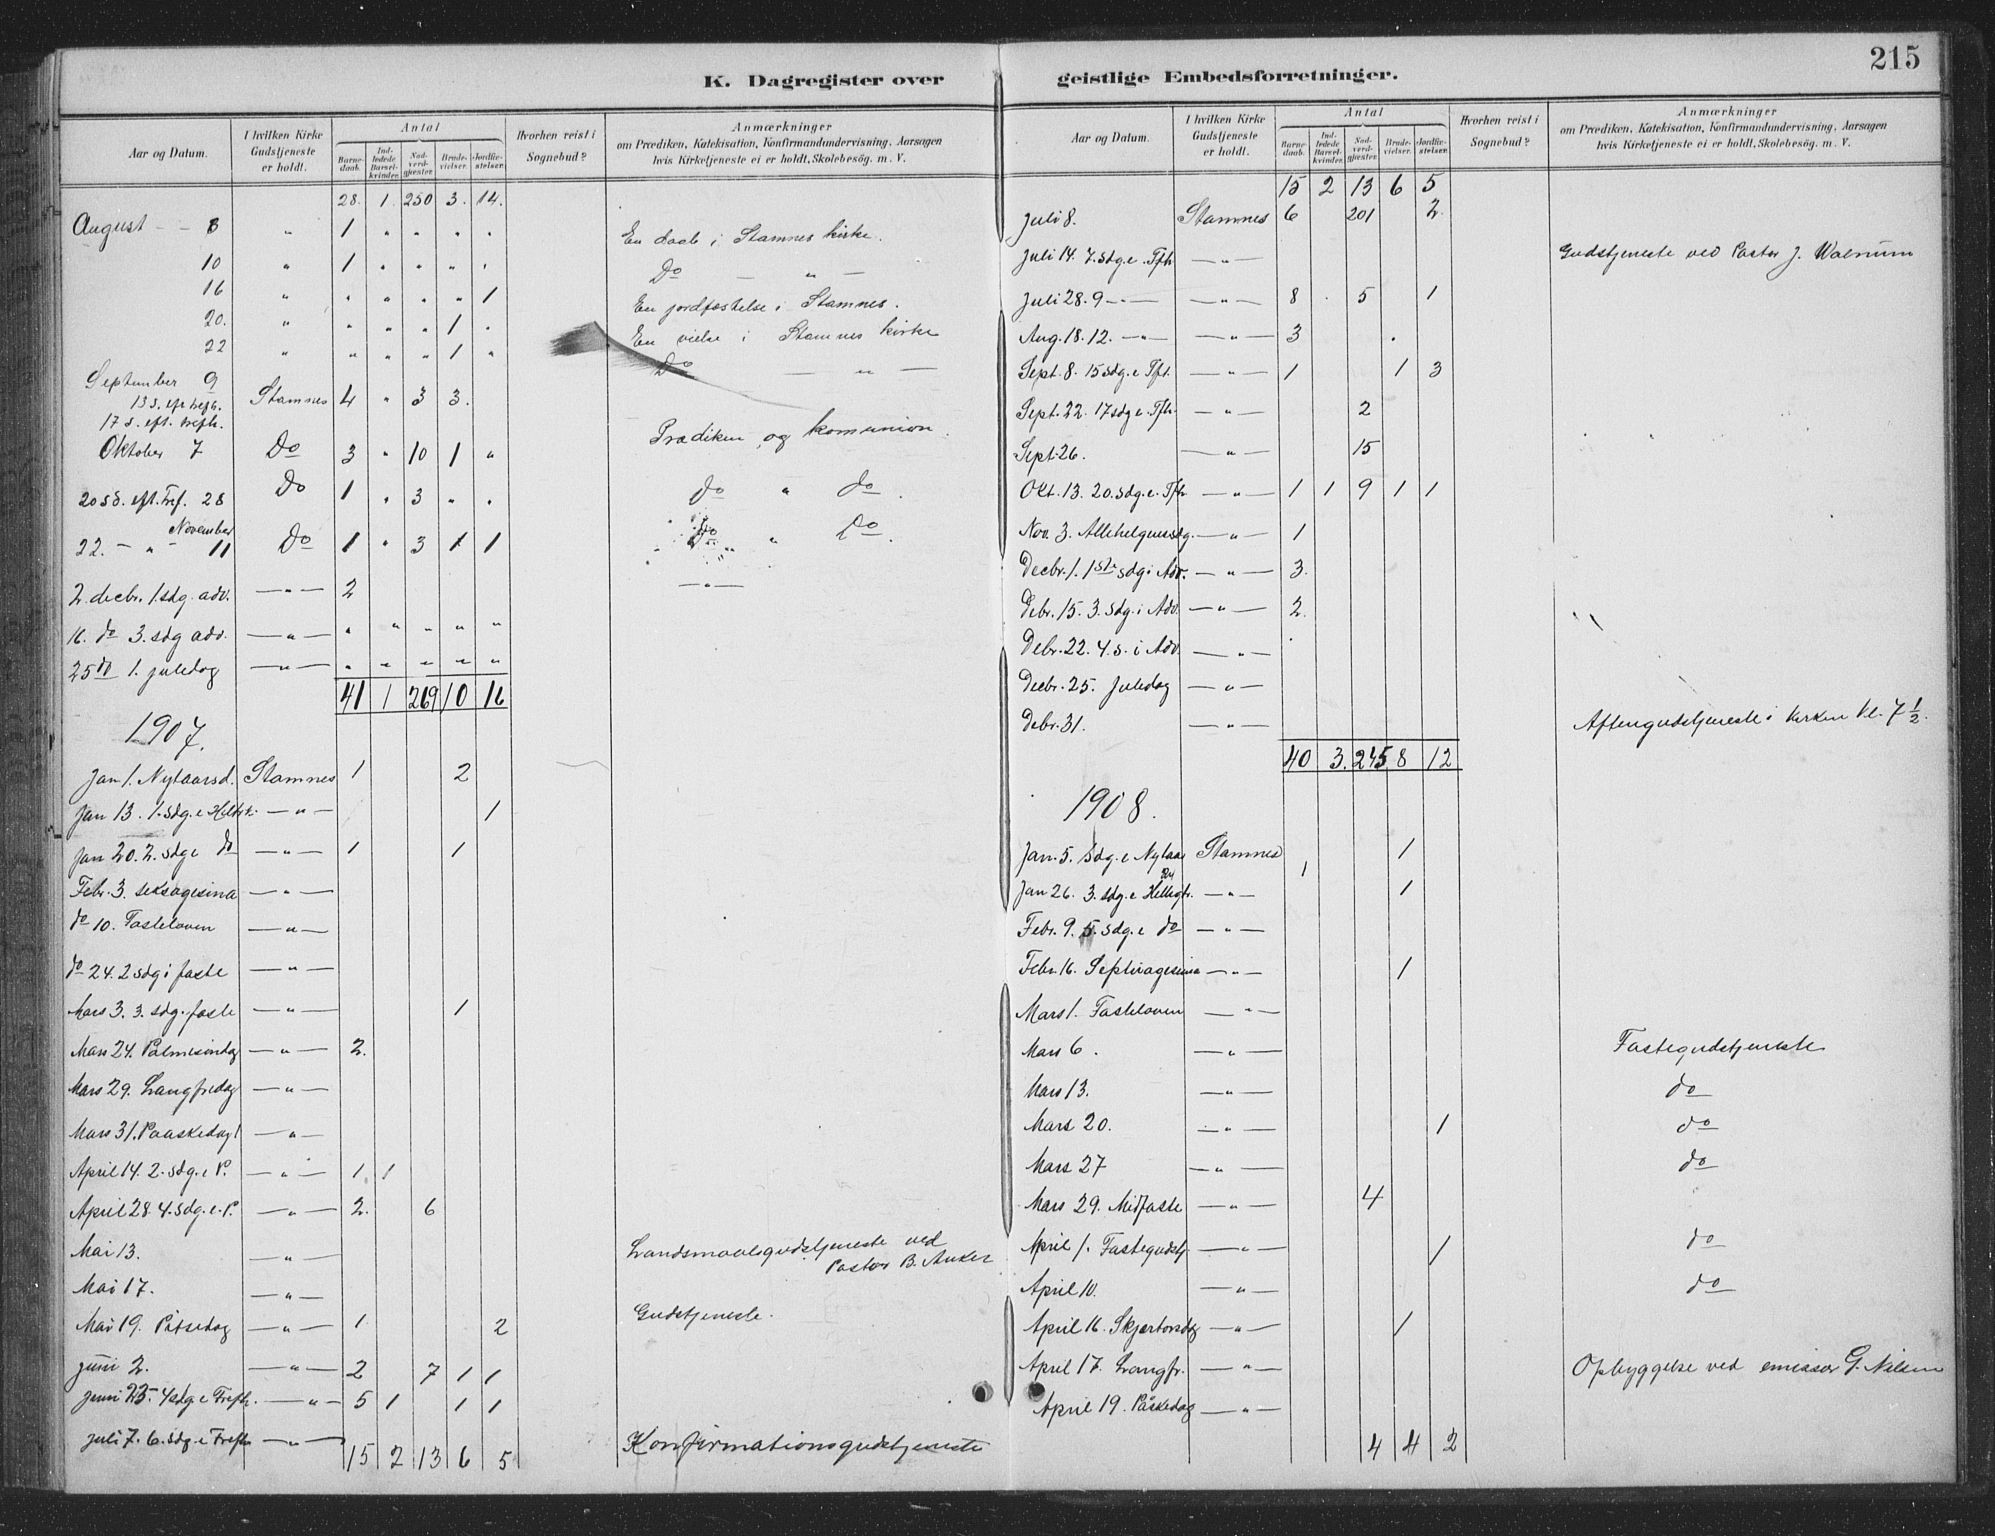 215
K. Dagregister over geistlige Embedsforretninger.
Aar og Datum. | I hvilken Kirke Gudstjeneste er holdt. | Antal | Barnedaab. | Indledede Barselkvinder. | Nadverdgjester. | Brudevielser. | Jordfæstelser. | Hvorhen reist i Sognebud? | Anmærkninger om Prædiken, Katekisation, Konfirmandundervisning, Aarsagen hvis Kirketjeneste ei er holdt, Skolebesög. m. V.
28. 1. 250 3. 14.
August - - 8 " 1 " " " " En daab i Stamnes kirke.
10 " 1 " " " " Do — " —
16 " " " " " 1 En jordfæstelse i Stamnes.
20. " " " " 1 " En vielse i Stamnes kirke
22 " " " " 1 " Do — " —
September 9
13 S. eft trefh. Stamnes 4 " 3 3. Prædiken og komunion.
17 s. eft. trefh.
Oktober 7 Do 3 " 10 1 " do " do.
20 sd. eft. Tref. 28 Do 1 " 3 " " Do " Do.
November
22. — " — 11 Do 1 " 3 1 1 — " —
2. decbr. 1. sdg. adv. — " — 2
16. do 3. sdg adv. — " — " " " " "
25 do 1. juledag — " — " " " " "
41 1 269 10 16
1907.
Jan 1. Nytaarsd. Stamnes 1 2
Jan 13. 1. sdg. e Heltrk. — " — 1
Jan 20. 2. sdg e do — " — 1 1
Febr. 3. seksagesima — " —
do 10. Fastelaven — " —
do 24. 2 sdg i faste — " —
Mars 3. 3. sdg. i faste — " — 1
Mars 24. Palmesøndag — " — 2.
Mars 29. Langfredag — " —
Mars 31. Paaskedag 1 — " —
April 14. 2. sdg. e P. — " — 1 1
April 28. 4. sdg. e. P. — " — 2. 6
Mai 13. — " — Landsmaalsgudstjeneste ved
Pastor B. Anker
Mai 17. — " —
Mai 19. Pinsedag — " — 1 2 Gudstjeneste.
Juni 2. — " — 2 7 1 1
Juni 23. 4 sdg. e Trefh. — " — 5 1 1 1
Juli 7. 6. sdg. e Trefh — " — Konfirmationsgudstjeneste
15 2 13 6 5
Aar og Datum. | I hvilken Kirke Gudstjeneste er holdt. | Antal | Barnedaab. | Indledede Barselkvinder. | Nadverdgjester. | Brudevielser. | Jordfæstelser. | Hvorhen reist i Sognebud? | Anmærkninger om Prædiken, Katekisation, Konfirmandundervisning, Aarsagen hvis Kirketjeneste ei er holdt, Skolebesög. m. V.
15 2 13 6 5
Juli 8. Stamnes 6 201 2
Juli 14. 7. sdg. e. Tfh — " — Gudstjeneste ved Pastor J. Walnum
Juli 28. 9 — " — — " — 8 5 1
Aug. 18. 12. — " — — " — 3
Sept. 8. 15 sdg. e Tfh. — " — 1 1 3
Sept. 22. 17 sdg e Tfh. — " — 2
Sept. 26. — " — 15
Okt. 13. 20. sdg. e. Tfh — " — 1 1 9 1 1
Nov. 3. Allehelgensdg. — " — 1
Decbr. 1. 1ste sdg i Adv. — " — 3.
Debr. 15. 3. sdg. i Adv. — " — 2.
Debr. 22. 4. s. i Adv. — " —
Decbr. 25. Juledag — " —
Debr. 31. — " — Aftengudstjeneste i kirken kl. 7 1/2.
40 3. 245 8 12
1908.
Jan. 5. Sdg. e Nytaar Stamnes 1 1
Jan 26. 3. sdg. e Helligtr. — " — 1
Febr. 9. 5. sdg. e do — " —
Febr. 16. Septuagesima — " — 1
Mars 1. Fastelaven — " —
Mars 6. — " — Fastegudstjeneste
Mars 13. — " — do
Mars 20. — " — 1 do
Mars 27 — " — do
Mars 29. Midfaste — " — 4
April 1. Fastegudstj. — " — 1 do
April 10. — " — do
April 16. Skjærtorsdag — " — 1
April 17. Langfr. — " — Opbyggelse ved emissær G. Nilsen
April 19. Påskedag — " —
4 4 2